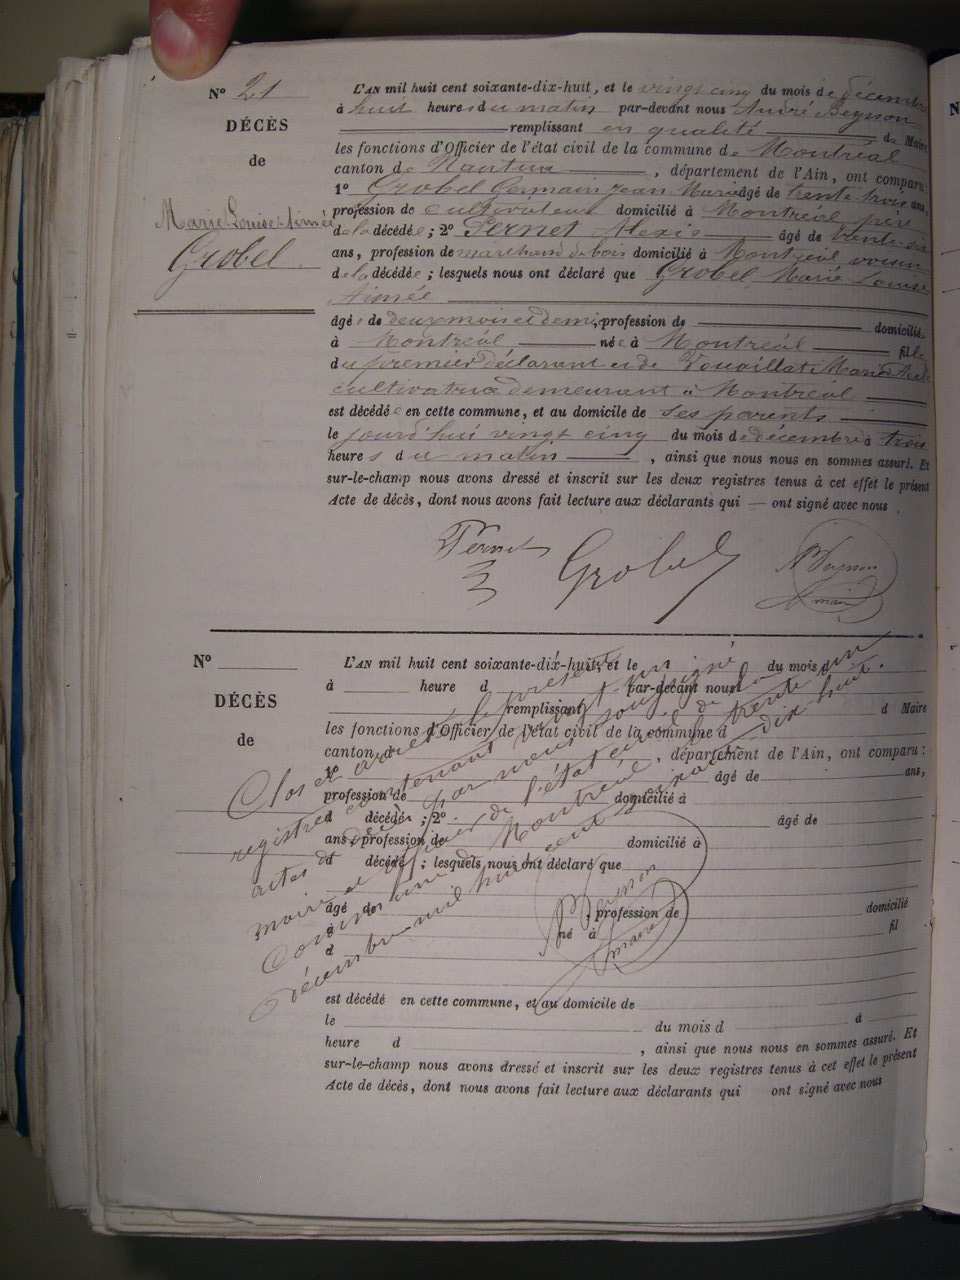 N° 21
DÉCÈS
de
Marie Louise Aimée
Grobel
L'AN mil huit cent soixante-dix-huit, et le vingt cinq du mois de décembre
à huit heures du matin par-devant nous André
remplissant en qualité de Maire
les fonctions d'Officier de l'état civil de la commune de Montréal
canton de Nantua, département de l'Ain, ont comparu :
1° Grobel Germain Jean Marie âgé de trente trois ans,
profession de cultivateur domicilié à Montréal père
de la décédée ; 2° Pernet Alexis âgé de
ans, profession de marchand de bois domicilié à Montréal voisin
de la décédée ; lesquels nous ont déclaré que Grobel, Marie Louise
Aimée
âgée de deux mois et demi, profession de domiciliée
à Montréal née à Montréal fille
du premier déclarant et de Marie
cultivatrice demeurant à Montréal
est décédée en cette commune, et au domicile de ses parents
le jourd'hui vingt cinq du mois de décembre à trois
heures du matin, ainsi que nous nous en sommes assuré. Et
sur-le-champ nous avons dressé et inscrit sur les deux registres tenus à cet effet le présent
Acte de décès, dont nous avons fait lecture aux déclarants qui — ont signé avec nous.
Pernet Grobel
maire
N°
DÉCÈS
de
L'AN mil huit cent soixante-dix-huit, et le du mois d
à heure d par-devant nous
remplissant d Maire
les fonctions d'Officier de l'état civil de la commune d
canton de, département de l'Ain, ont comparu :
1° âgé de ans,
profession de domicilié à
d décédé ; 2° âgé de
ans, profession de domicilié à
d décédé ; lesquels nous ont déclaré que
âgé de, profession de domicilié
à né à fil
d
est décédé en cette commune, et au domicile de
le du mois d d
heure d, ainsi que nous nous en sommes assuré. Et
sur-le-champ nous avons dressé et inscrit sur les deux registres tenus à cet effet le présent
Acte de décès, dont nous avons fait lecture aux déclarants qui ont signé avec nous
Clos et arrêté le présent
registre contenant vingt un
actes de décès par nous soussigné
maire et officier de l'état civil de la
commune de Montréal le trente un
décembre mil huit cent soixante dix huit.
maire